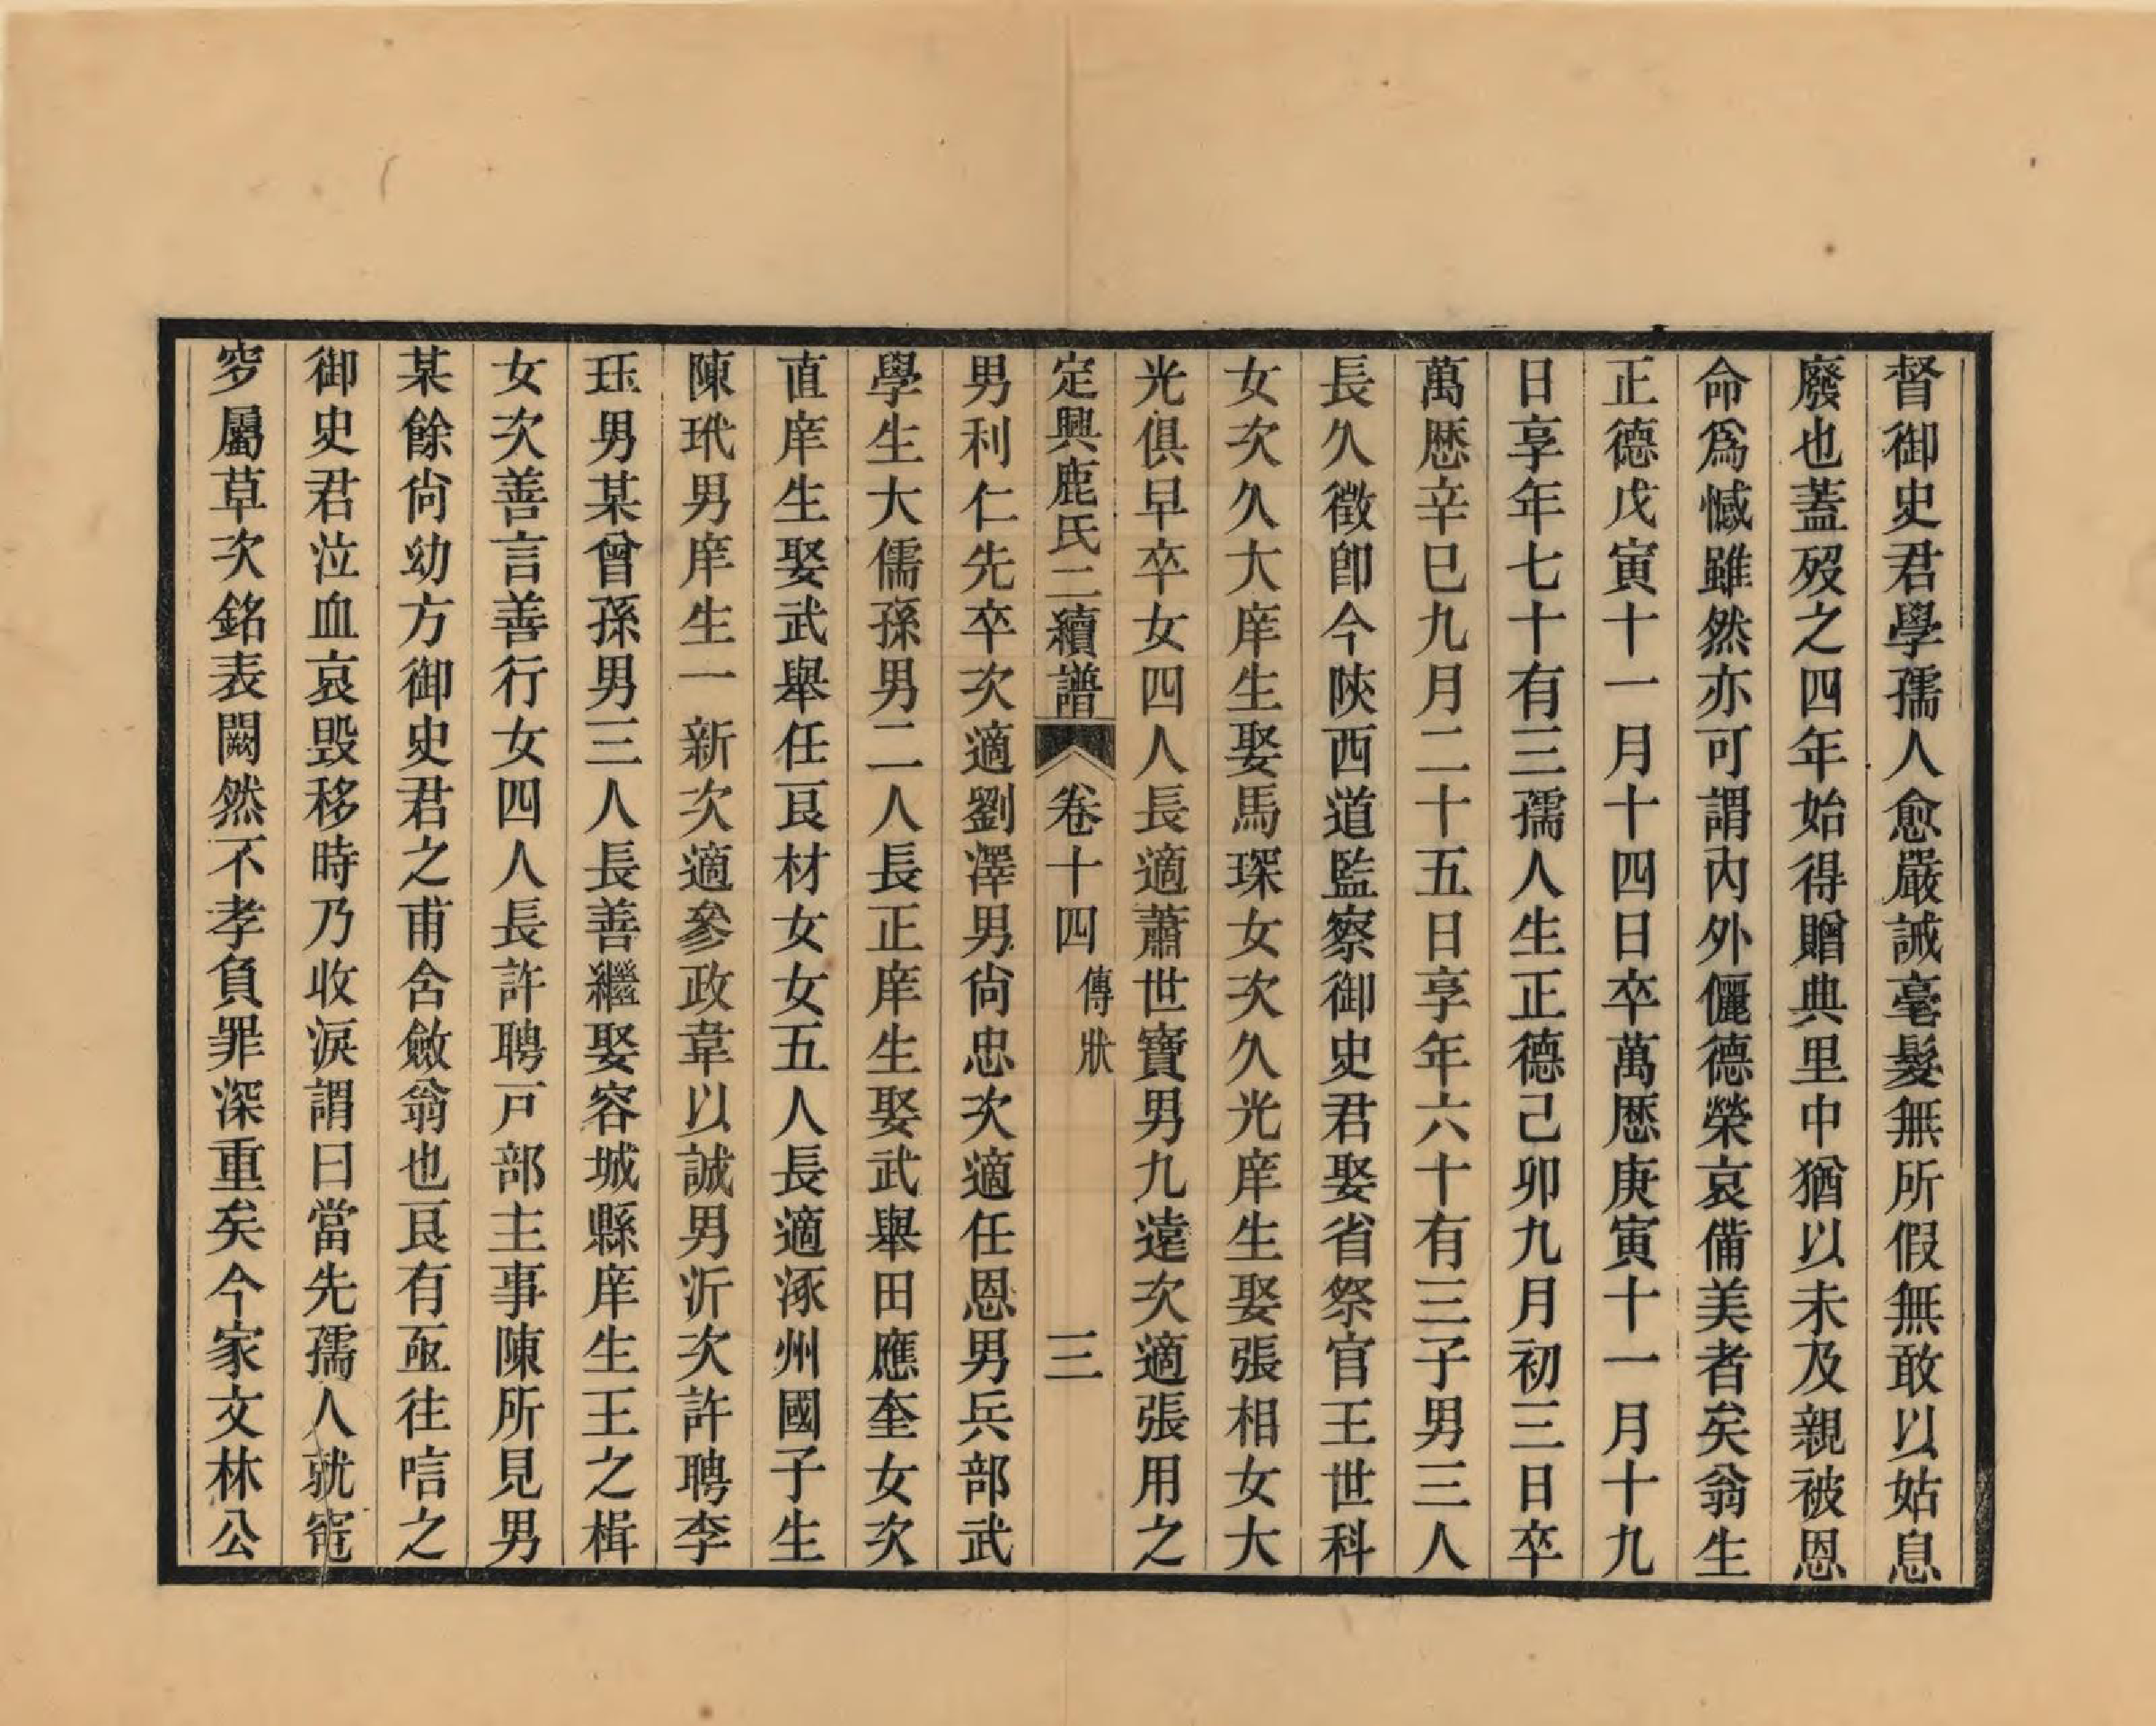 督御史君學孺人愈嚴誡毫髮無所假無敢以姑息
廢也蓋歿之四年始得贈典里中猶以未及親被恩
命爲憾雖然亦可謂內外儷德榮哀備美者矣翁生
正德戊寅十一月十四日卒萬歷庚寅十一月十九
日享年七十有三孺人生正德己卯九月初三日卒
萬歷辛巳九月二十五日享年六十有三子男三人
長久徵卽今陝西道監察御史君娶省祭官王世科
女次久大庠生娶馬琛女次久光庠生娶張相女大
光俱早卒女四人長適蕭世寶男九遠次適張用之
定興鹿氏二續譜 卷十四 傳狀 三
男利仁先卒次適劉澤男尙忠次適任恩男兵部武
學生大儒孫男二人長正庠生娶武舉田應奎女次
直庠生娶武舉任艮材女女五人長適涿州國子生
陳玳男庠生一新次適參政韋以誠男沂次許聘李
珏男某曾孫男三人長善繼娶容城縣庠生王之楫
女次善言善行女四人長許聘戸部主事陳所見男
某餘尙幼方御史君之甫含斂翁也艮有亟往唁之
御史君泣血哀毀移時乃收淚謂曰當先孺人就窀
穸屬草次銘表闕然不孝負罪深重矣今家文林公